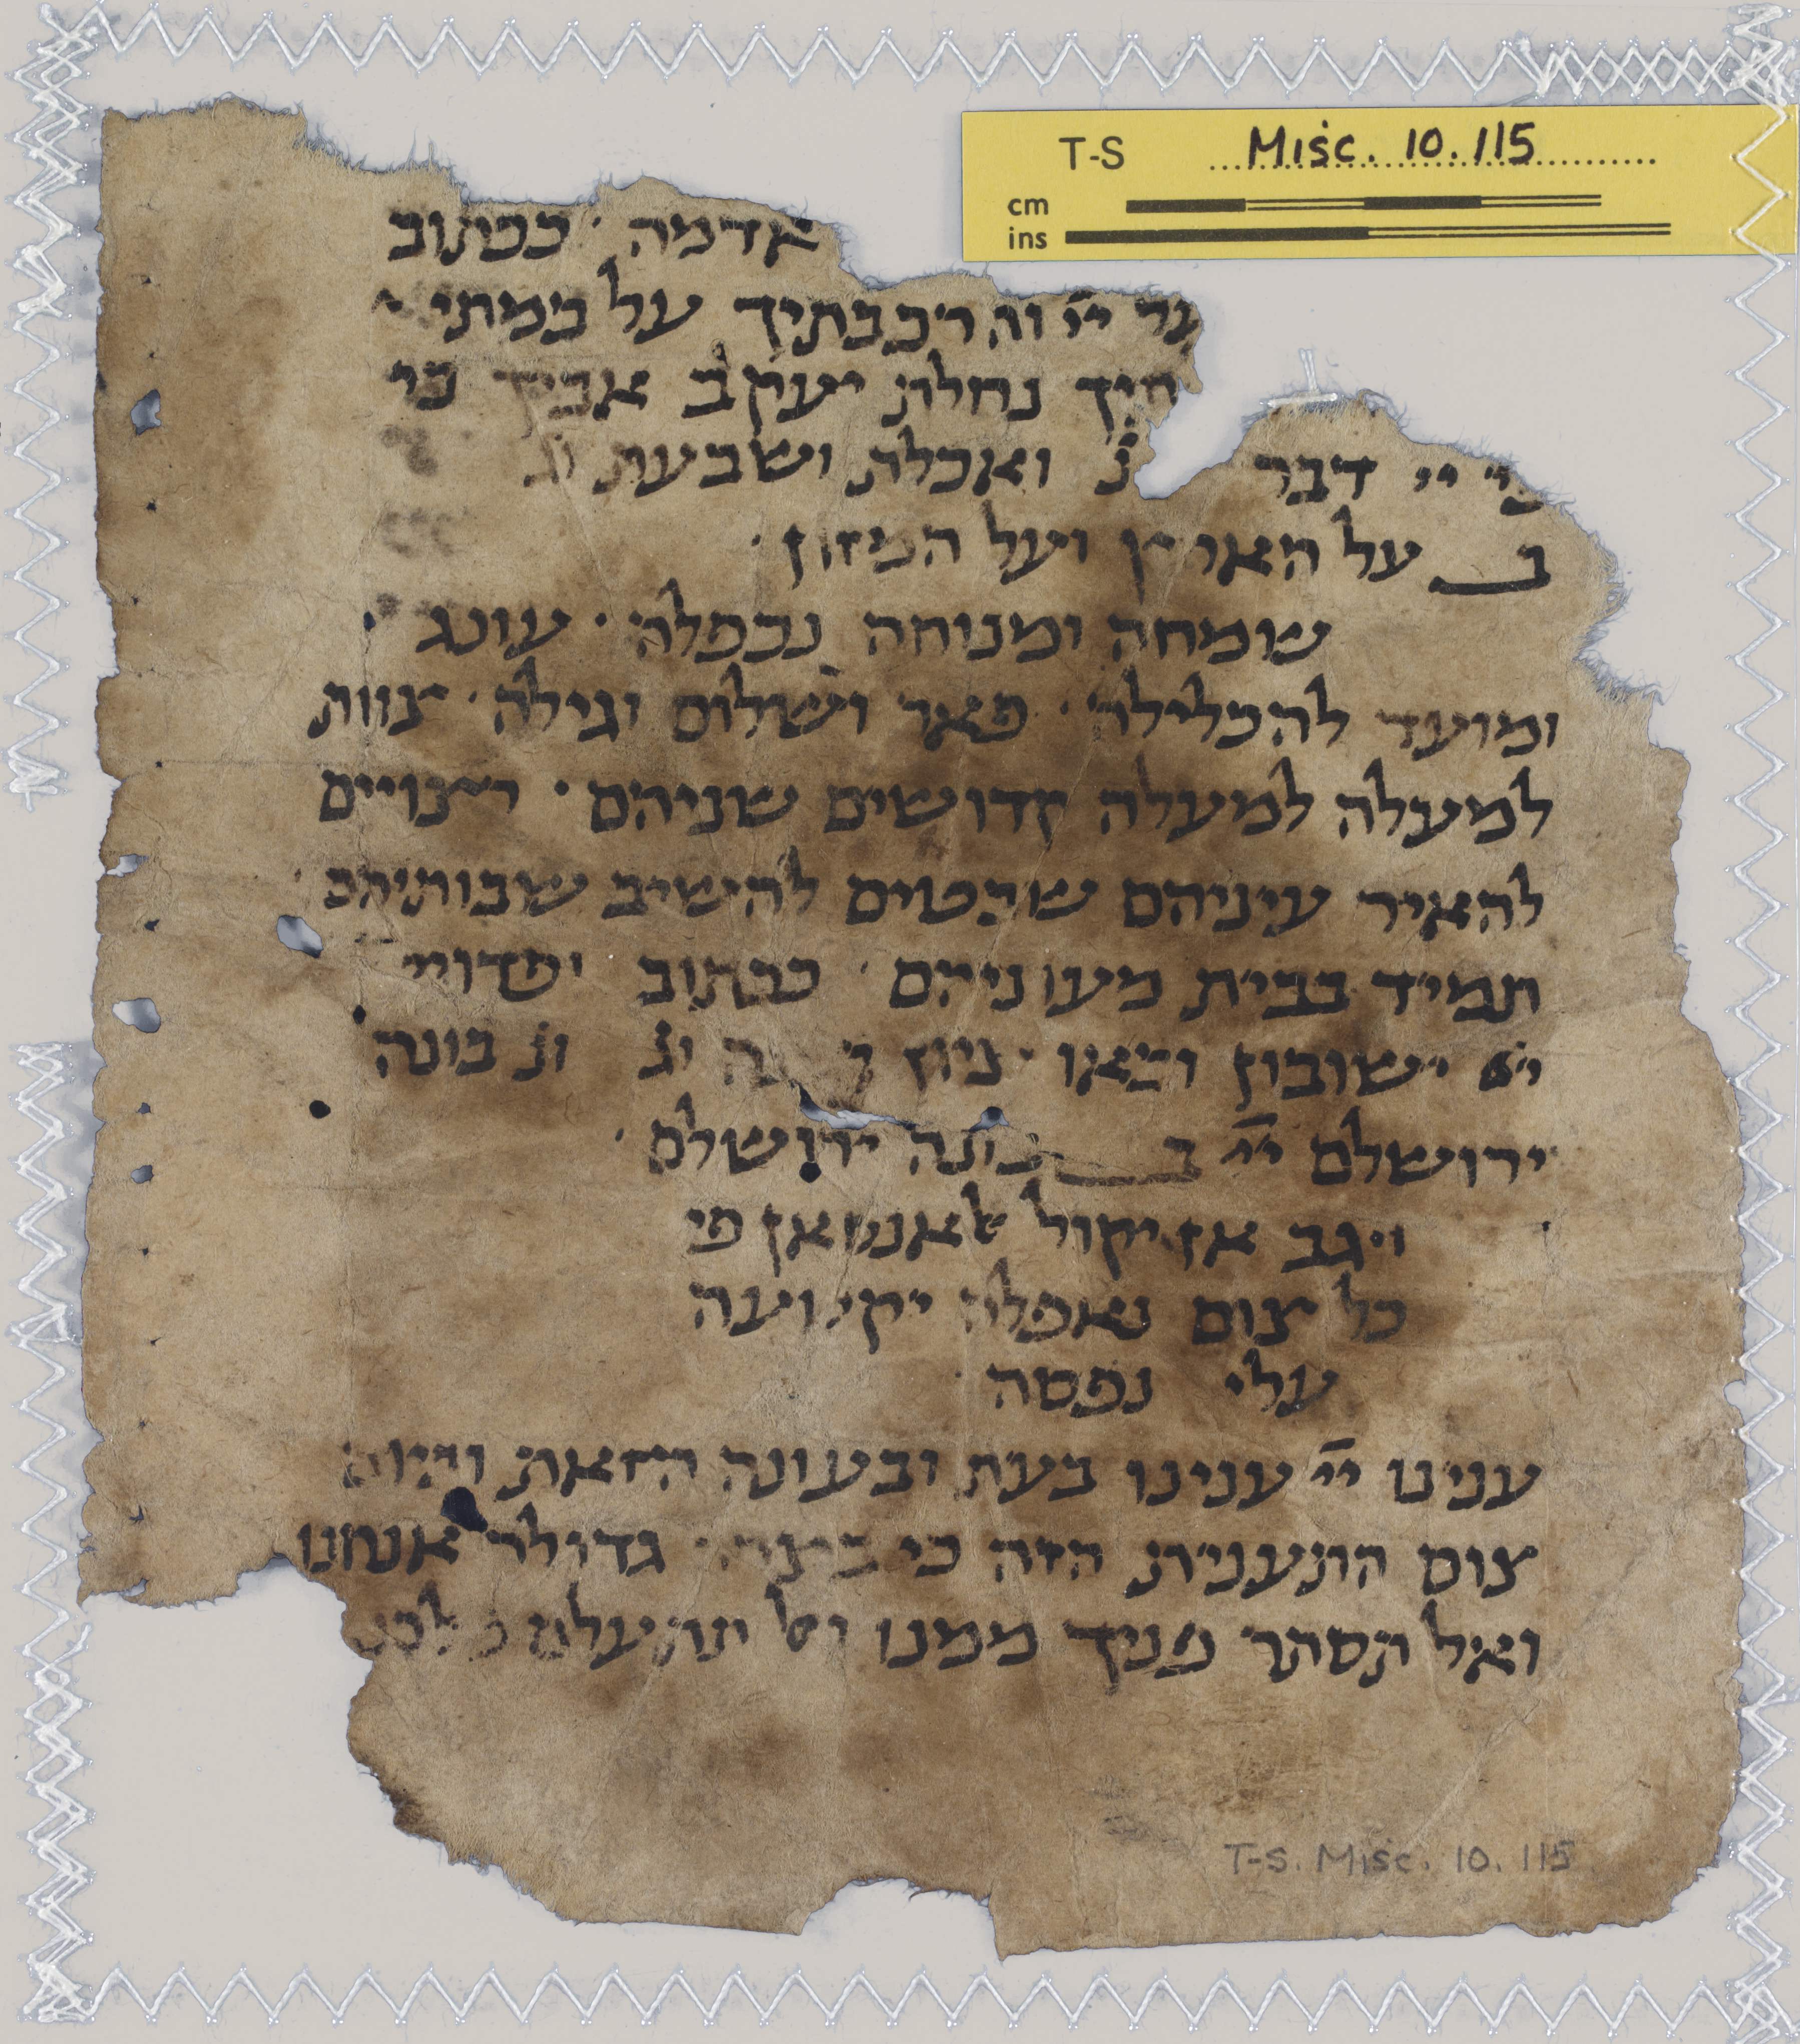 T-S Misc. 10.115
cm
ins
אדמה · ככתוב
על ייי והרכבתיך על במתי
נחלת יעקב אביך כי
כי ייי דבר ונ ואכלת ושבעת וג
ב על הארץ ועל המזון ·
שומחה ומנוחה נכפלה · עונג
ומועד להכלילה · פאר ושלום וגילה · צוות
למעלה למעלה קדושים שניהם · רצויים
להאיר עיניהם שבטים להשיב שבותיהם
תמיד בבית מעוניהם · ככתוב ופדויי
ייי ישובון ובאו ציון וג וג בונה
ירושלם ייי ב בונה ירושלם ·
ויגב אן יקול לאנסאן פי
כל צום נאפלה יקטועה
עלי נפסה
ענינו ייי ענינו בעת ובעונה הזאת וביום
צום התענית הזה כי בצרה גדולה אנחנו
ואל תסתר פניך ממנו ואל תתעלם
T-S. Misc. 10.115